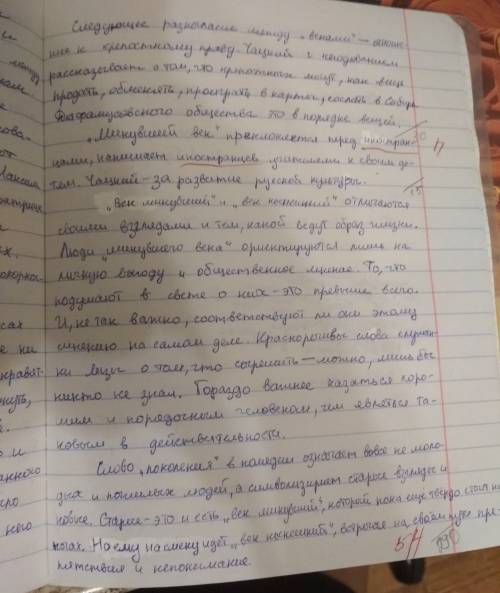 Следующее разногласие между „веками" – отноше-
ние к крепостному праву. Чацкий с негодованием
рассказывает о том, что крепостных могут, как вещь
продать, обменять, проиграть в карты, сослать в Сибирь
Для фамусовского общества это в порядке вещей.
„Минувший век" преклоняется перед иностран-
цами, нанимает иностранцев учителями к своим де-
тям. Чацкий – за развитие русской культуры.
„век минувший" и „век нынешний" отличаются
своими взглядами и тем, какой ведут образ жизни.
Люди „минувшего века" ориентируются лишь на
личную выгоду и общественное мнение. То, что
подумают в свете о них – это превыше всего.
И, не так важно, соответствуют ли они этому
мнению на самом деле. Красноречивы слова служан-
ки Лизы о том, что согрешить – можно, лишь бы
никто не знал. Гораздо важнее казаться хоро-
шим и порядочным человеком, чем являться та-
ковым в действительности.
Слово „поколения" в комедии означает вовсе не моло-
дых и пожилых людей, а символизирует старые взгляды и
новые. Старые – это и есть „век минувший", который пока еще твердо стоит на
ногах. Но ему на смену идет „век нынешний", встречая на своём пути пре-
пятствия и непонимание.